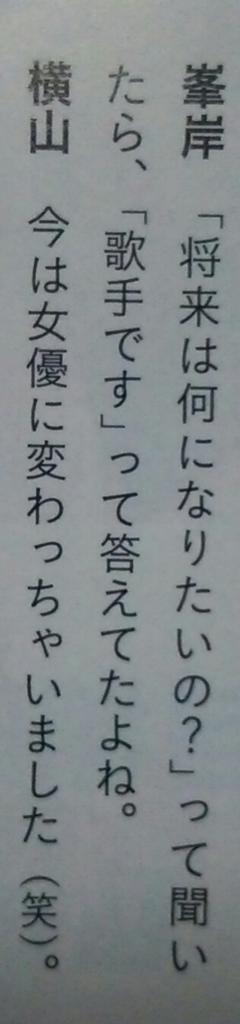 峯岸　「将来は何になりたいの？」って聞い
たら、「歌手です」って答えてたよね。
横山　今は女優に変わっちゃいました（笑）。